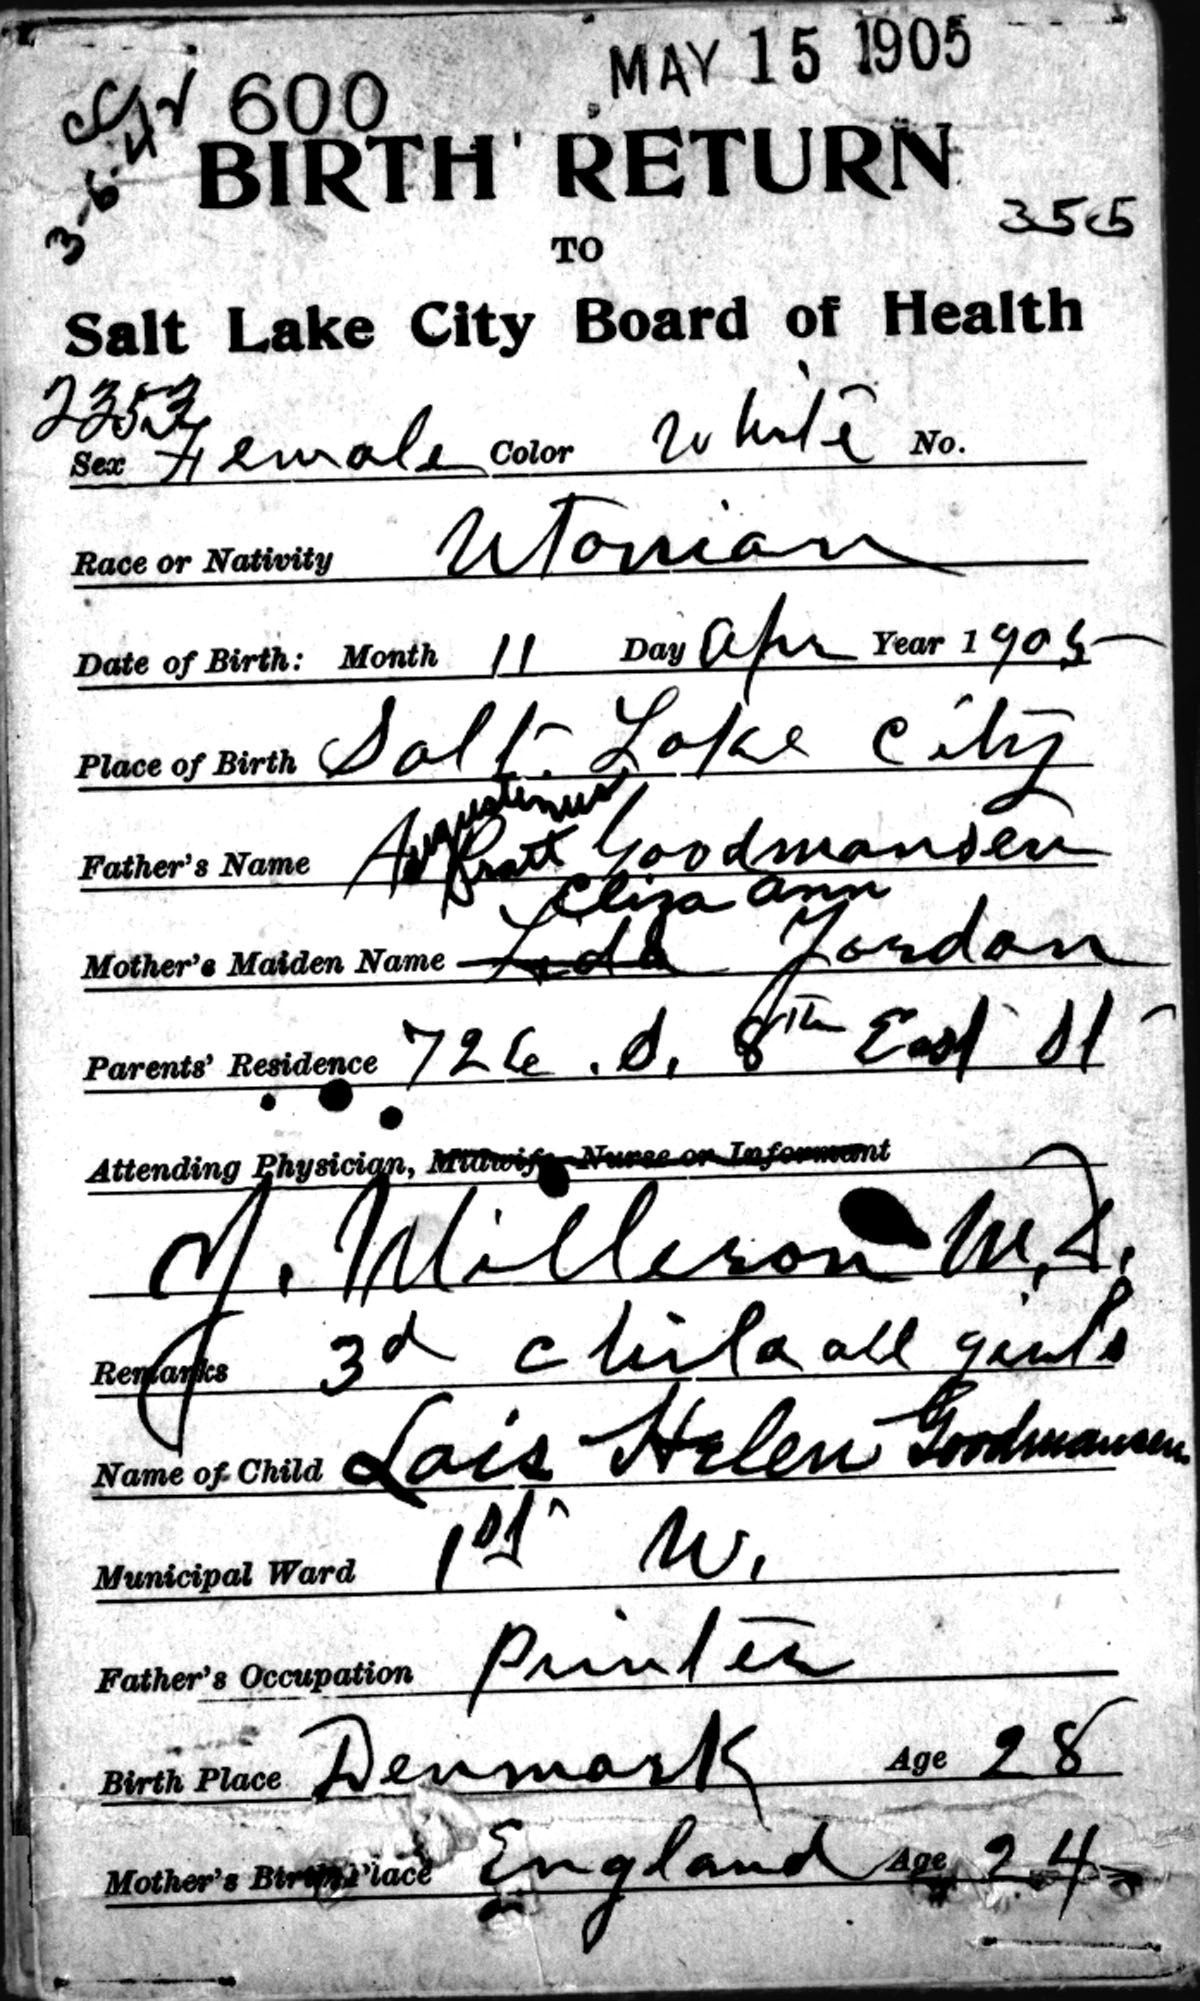 MAY 15 1905
600
3-6-42
BIRTH RETURN
355
TO
Salt Lake City Board of Health
2353
Sex Female Color White No.
Race or Nativity Utonian
Date of Birth: Month 11 Day Apr Year 1905
Place of Birth Salt Lake City
Augustinus
Father's Name A Pratt Goodmansen
Eliza Ann
Mother's Maiden Name Lida Jordan
Parents' Residence 726 . S. 8th East St
Attending Physician, Midwife Nurse or Informant
J. Milleson M.D.
Remarks 3d child all girls
Name of Child Lois Helen Goodmansen
Municipal Ward 1st W.
Father's Occupation Printer
Birth Place Denmark Age 28
Mother's Birth Place England Age 24